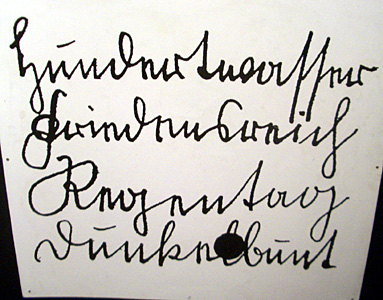 Hundertwasser
Friedensreich
Regentag
Dunkelbunt